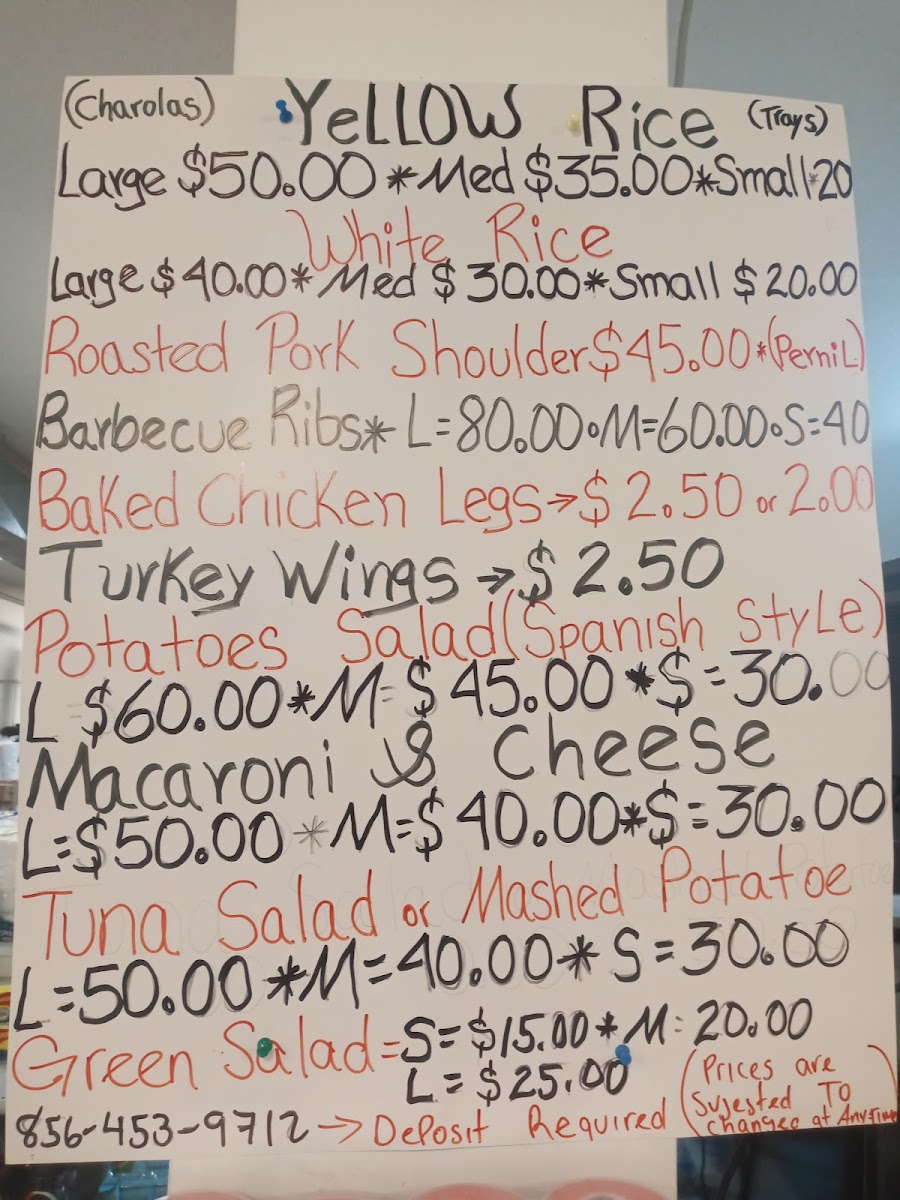 (Charolas) YeLLOW Rice (Trays)
Large $50.00 *Med $35.00*Small*20
White Rice
Large $40.00* Med $30.00*Small $20.00
Roasted Pork Shoulder $45.00*(PerniL)
Barbecue Ribs* L=80.00•M=60.00•S=40
Baked Chicken Legs→$2.50 or 2.00
Turkey Wings →$2.50
Potatoes Salad(Spanish StyLe)
L $60.00*M=$45.00 *$=30.00
Macaroni & Cheese
L=$50.00 *M=$40.00*$=30.00
Tuna Salad or Mashed Potatoe
L=50.00 *M=40.00* S=30.00
Green Salad=S=$15.00*M=20.00
L=$25.00
856-453-9712→Deposit Required
(Prices are
Sujested To
changed at AnyTime